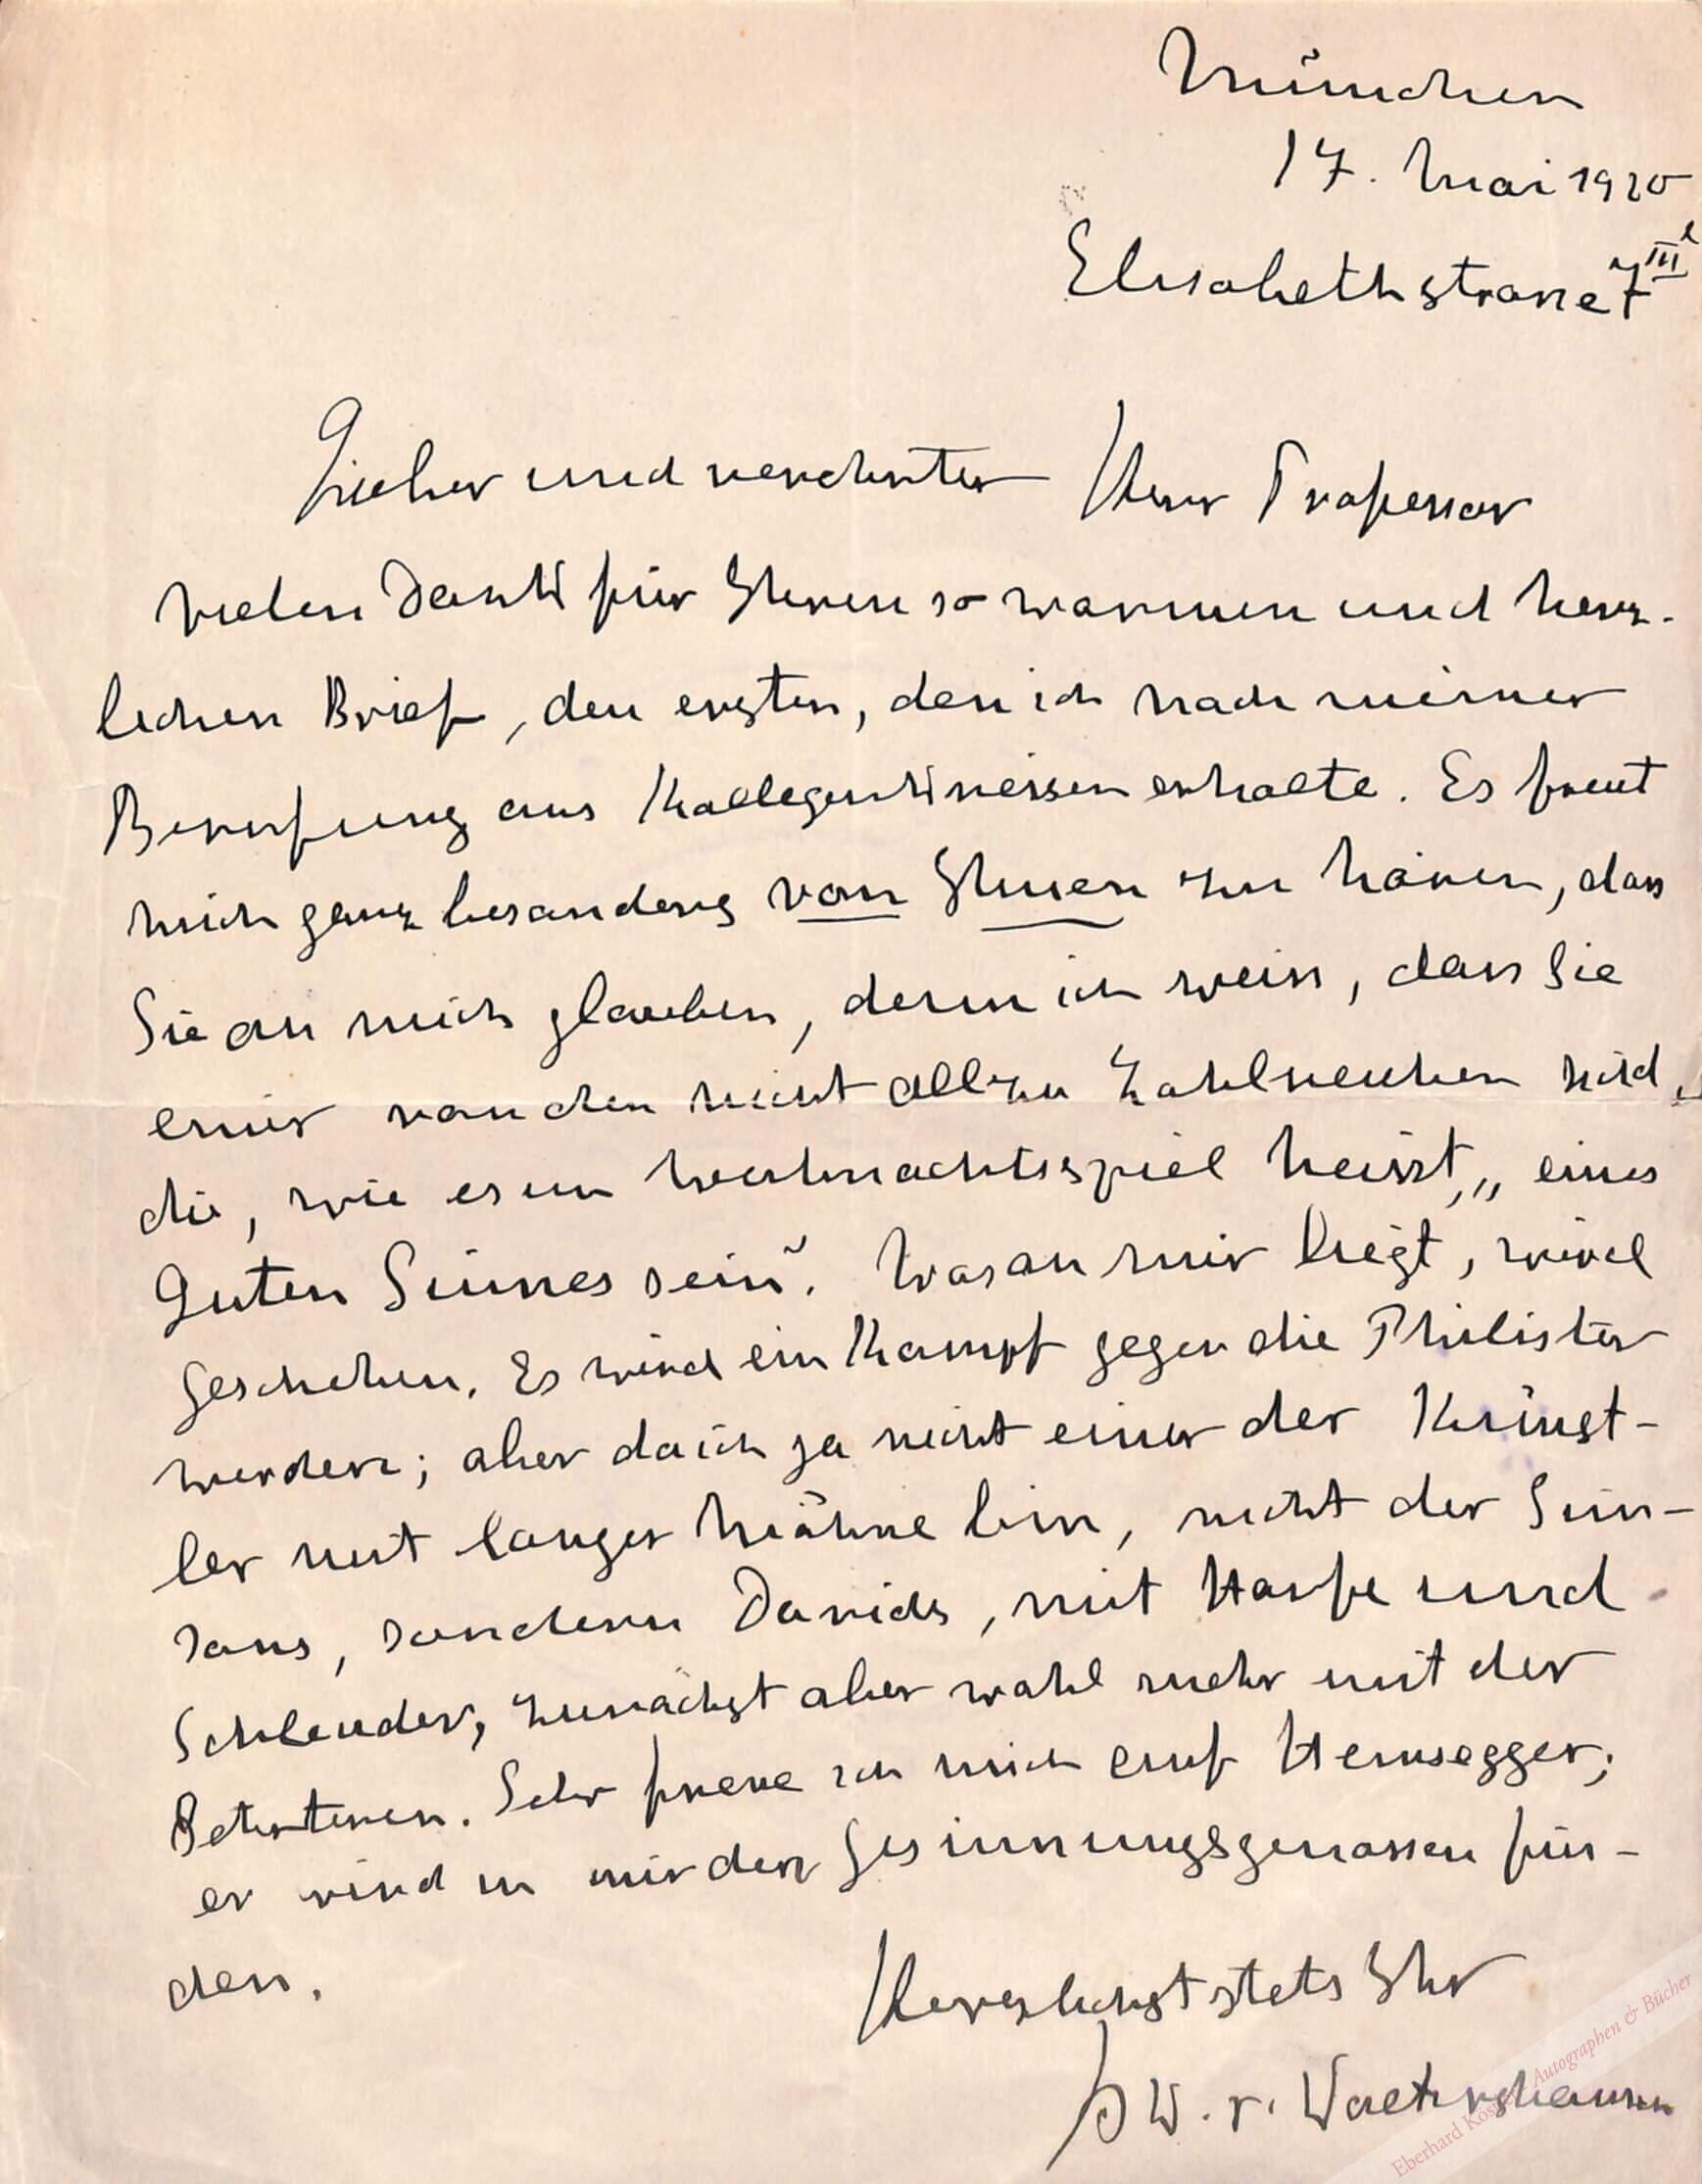 München
17. Mai 1920
Elisabethstrasse 7 III l
Lieber und verehrter Herr Professor
vielen Dank für Ihren so warmen und herz-
lichen Brief, den ersten, den ich nach meiner
Berufung aus Kollegenkreisen erhalte. Es freut
mich ganz besonders von Ihnen zu hören, dass
Sie an mich glauben, denn ich weiss, dass Sie
einer von den nicht allzu Zahlreichen sind,
die, wie es im Weihnachtsspiel heisst, „eines
Guten Sinnes sein“. Was an mir liegt, wird
geschehen. Es wird ein Kampf gegen die Philister
werden; aber da ich ja nicht einer der Künst-
ler mit langer Mähne bin, nicht der Sim-
sons, sondern Davids, mit Harfe und
Schleuder, zunächst aber wohl mehr mit der
Letzteren. Sehr freue ich mich auf
er wird in mir den Gesinnungsgenossen fin-
den.
Herzlichst stets Ihr
W. v. Waltershausen
Eberhard Köstler Autographen & Bücher